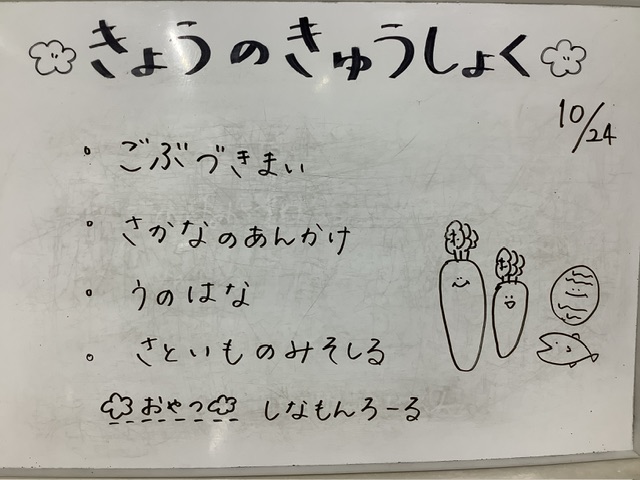 きょうのきゅうしょく
10/24
・ごぶづきまい
・さかなのあんかけ
・うのはな
・さといものみそしる
おやつ しなもんろーる